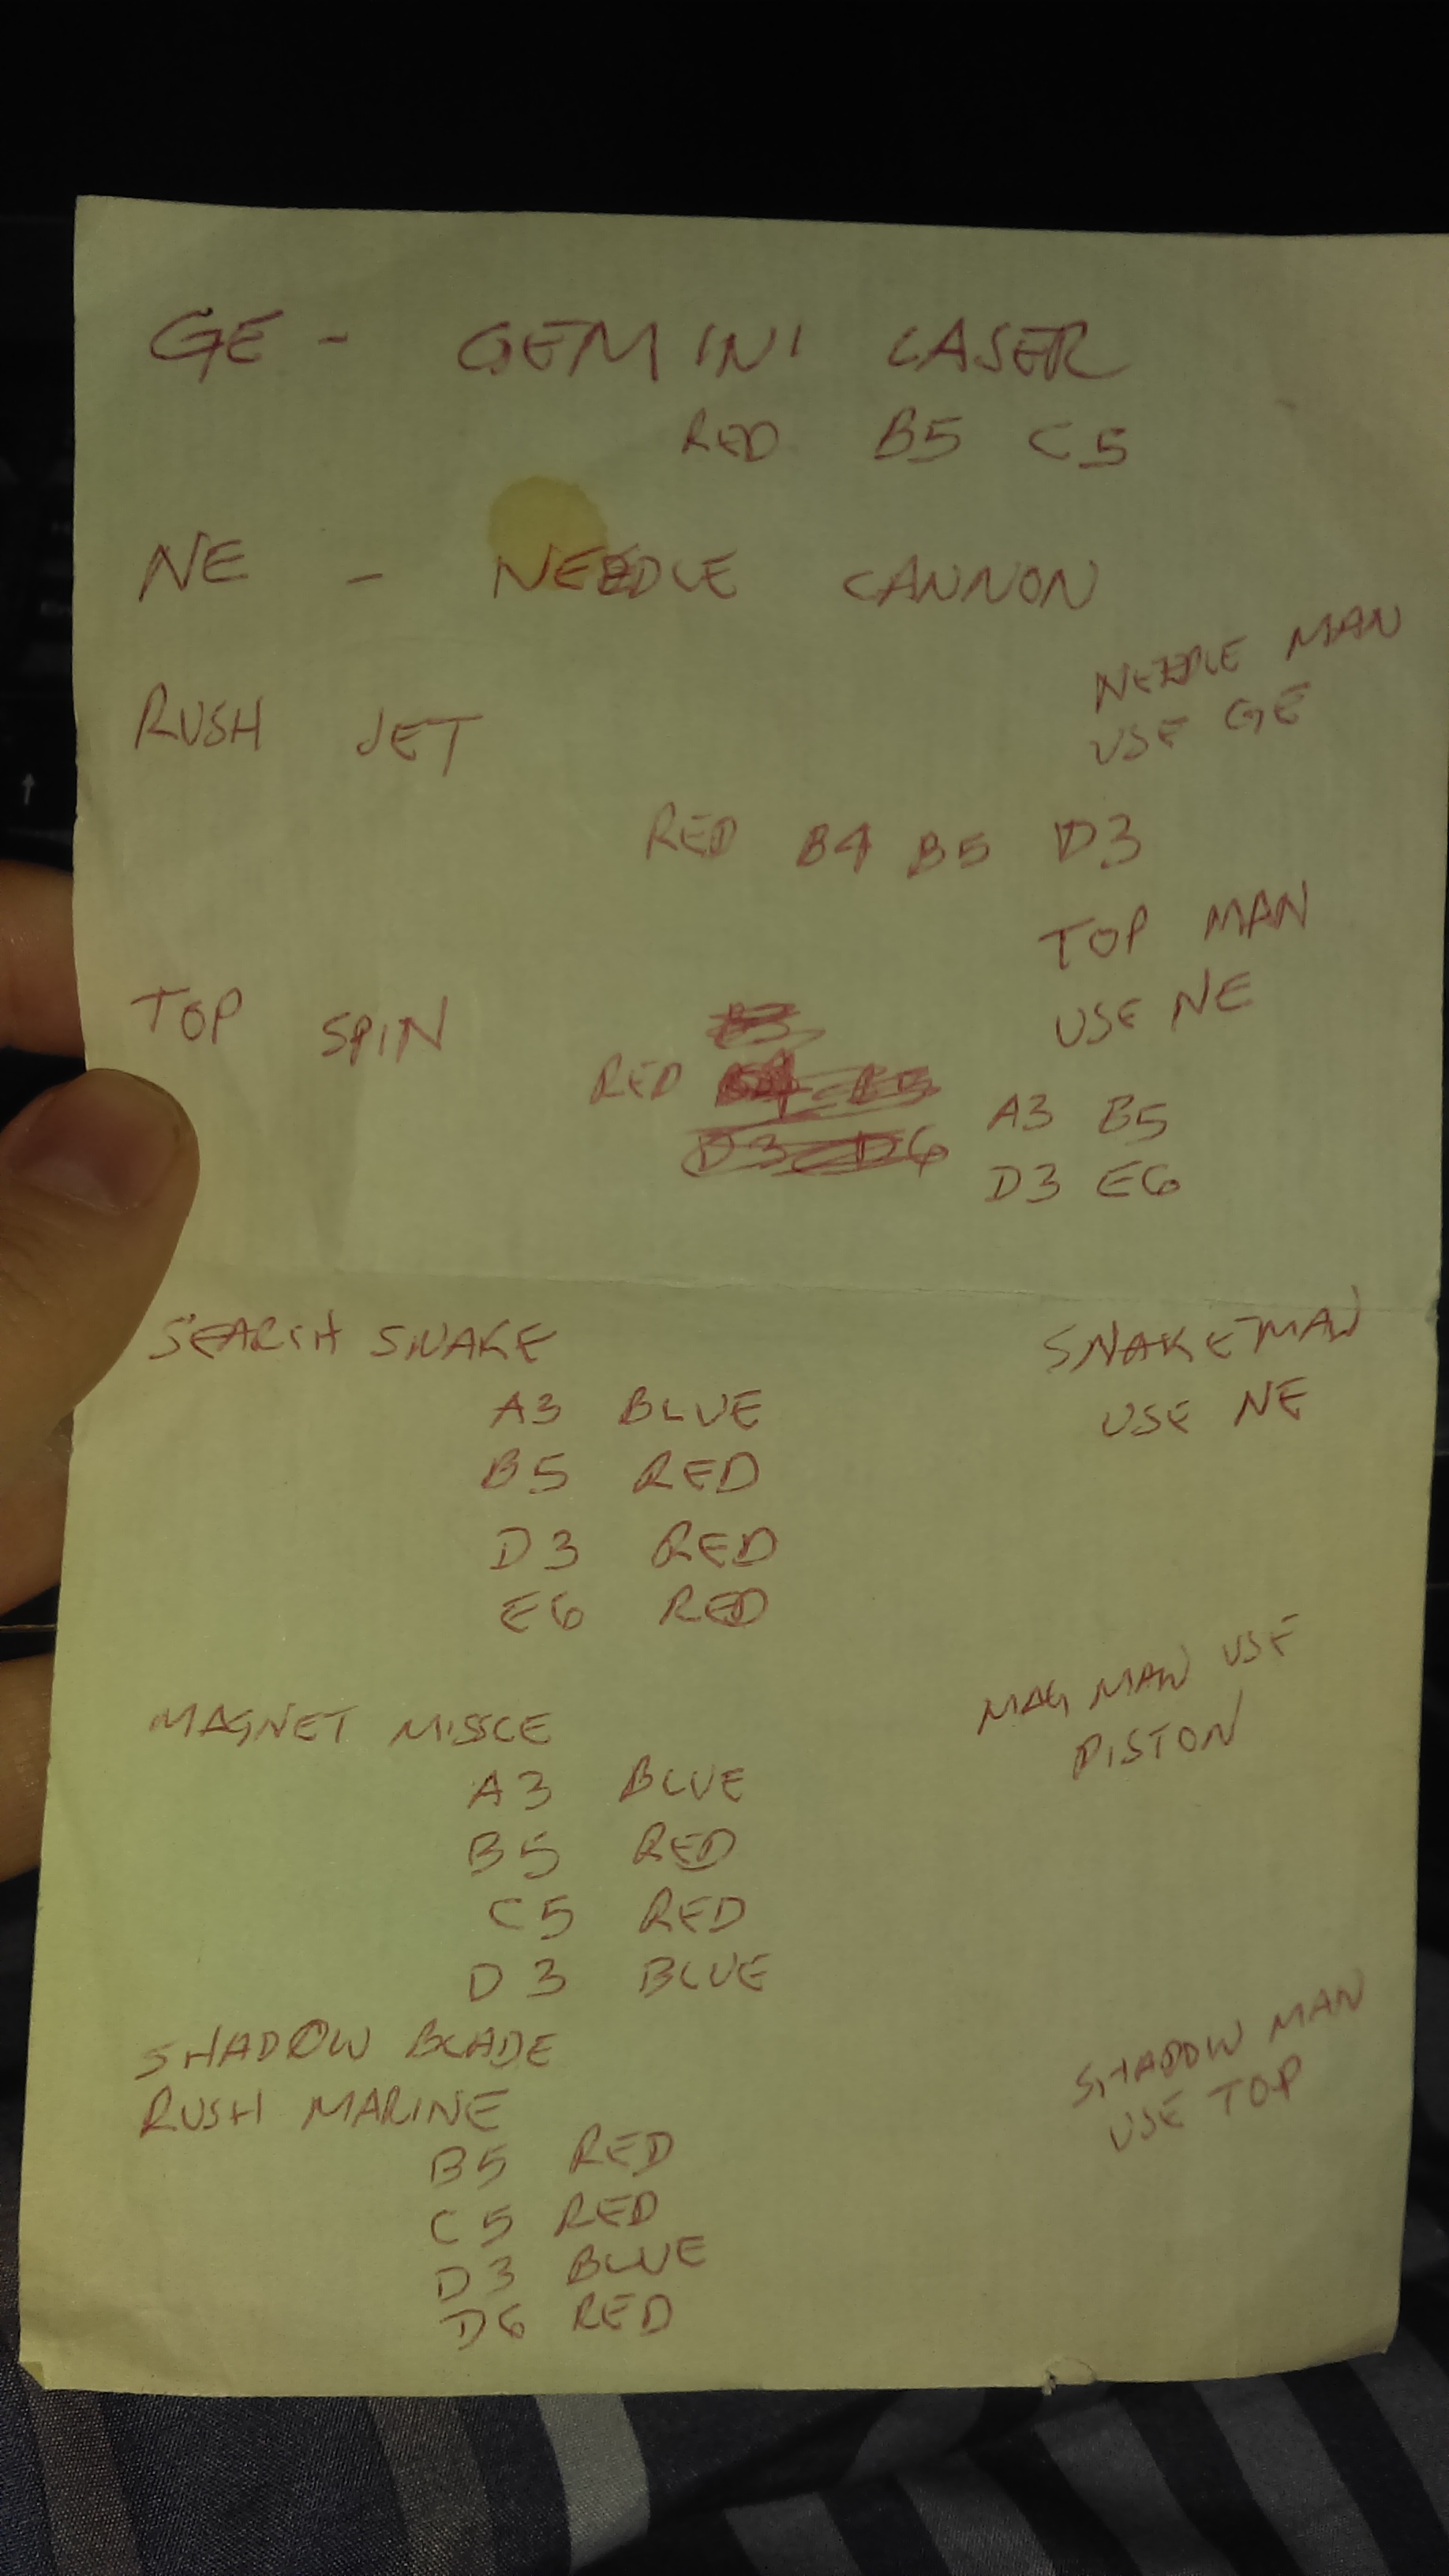 GE - GEMINI LASER
RED B5 C5
NE - NEEDLE CANNON
NEEDLE MAN
USE GE
RUSH JET
RED B4 B5 D3
TOP MAN
USE NE
TOP SPIN
B3
RED B4 B5
D3 D6
A3 B5
D3 E6
SEARCH SNAKE
SNAKEMAN
USE NE
A3 BLUE
B5 RED
D3 RED
E6 RED
MAGNET MISSLE
MAG MAN USE
PISTON
A3 BLUE
B5 RED
C5 RED
D3 BLUE
SHADOW BLADE
RUSH MARINE
SHADOW MAN
USE TOP
B5 RED
C5 RED
D3 BLUE
D6 RED